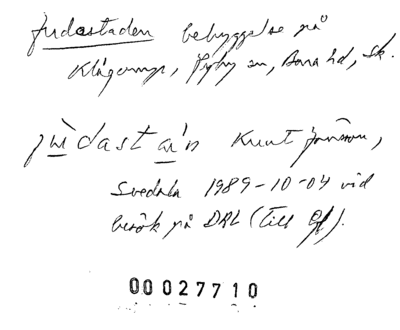 Judastaden bebyggelse på
Klågerup, Hyby sn, Bara hd, Sk.
Knut Jönsson,
Svedala 1989-10-04 vid
besök på DAL (till Gf).
00027710